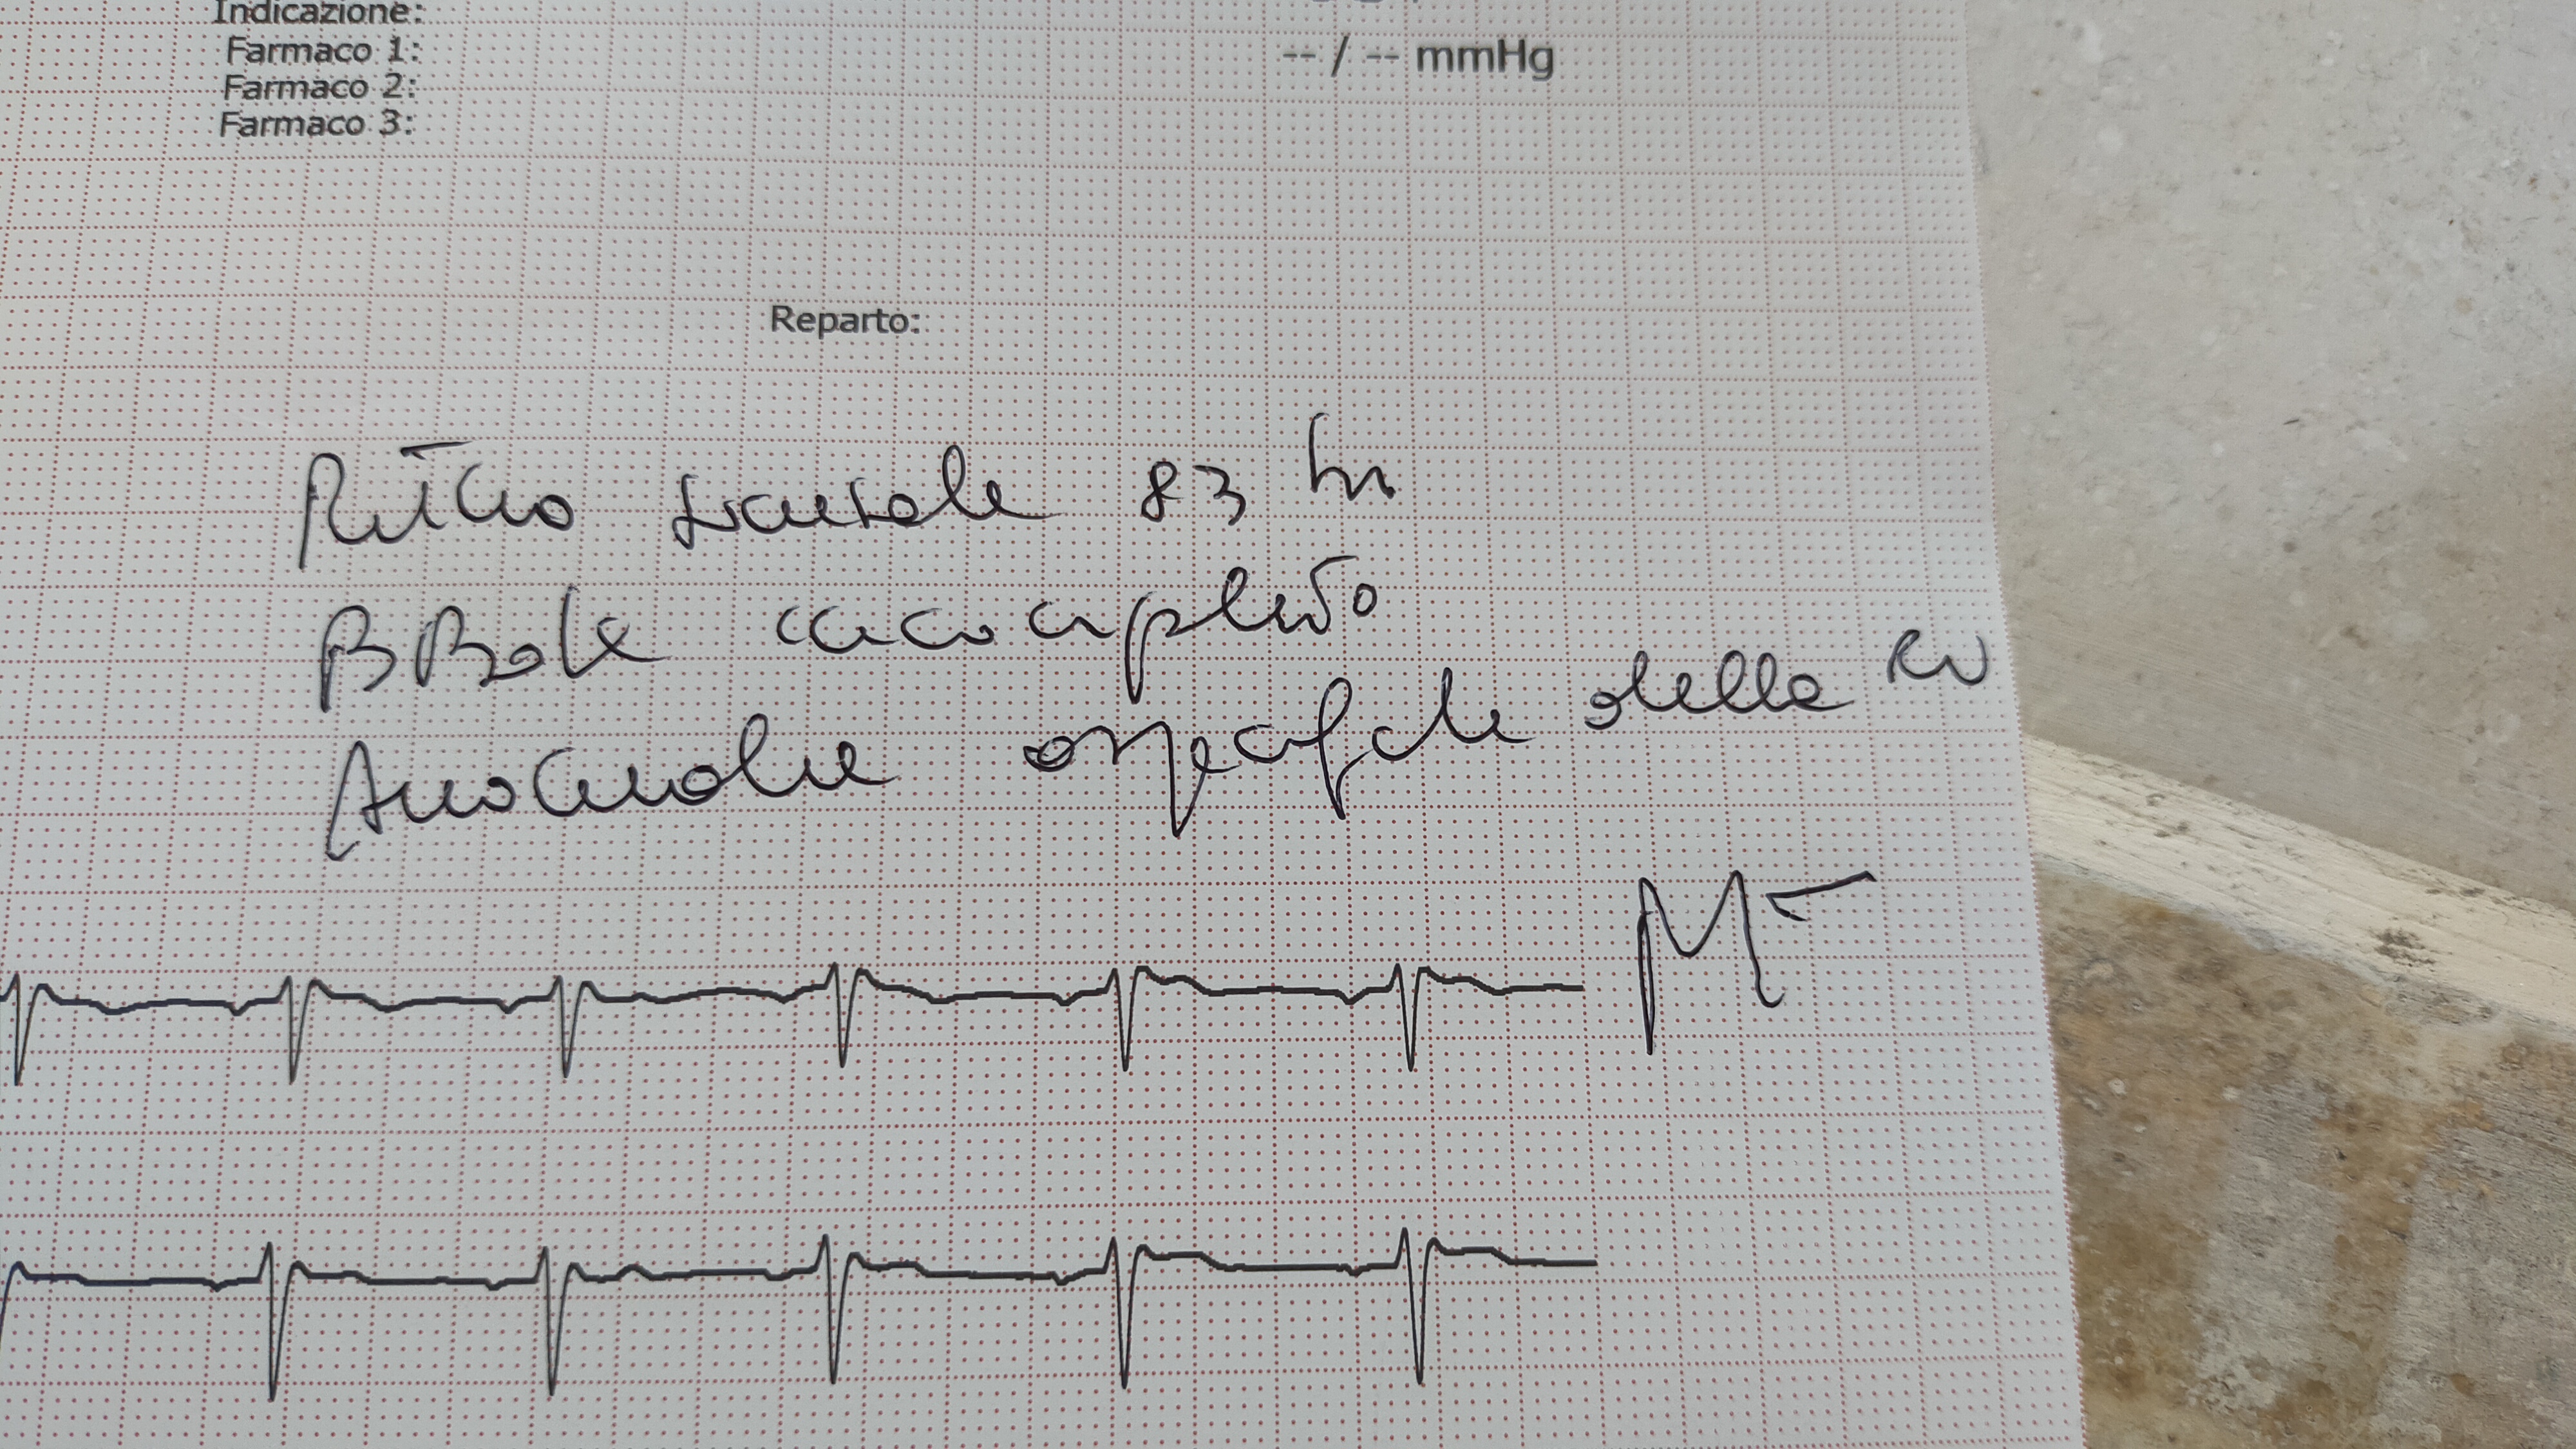 Indicazione:
Farmaco 1:
-- / -- mmHg
Farmaco 2:
Farmaco 3:
Reparto:
Ritmo sinusale 83 bm
BBdx incompleto
Anomalie aspecifiche della RV